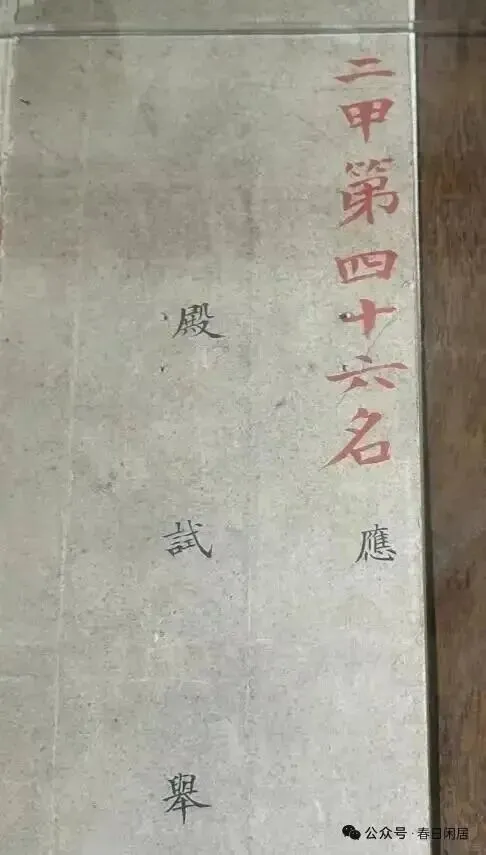 二甲第四十六名
應
殿試舉
公众号·春日闲居